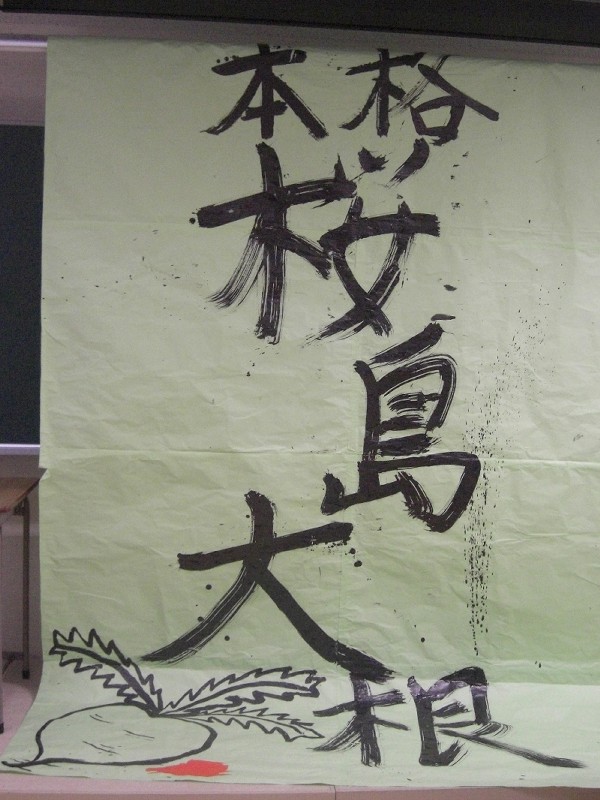 本格
桜島
大根